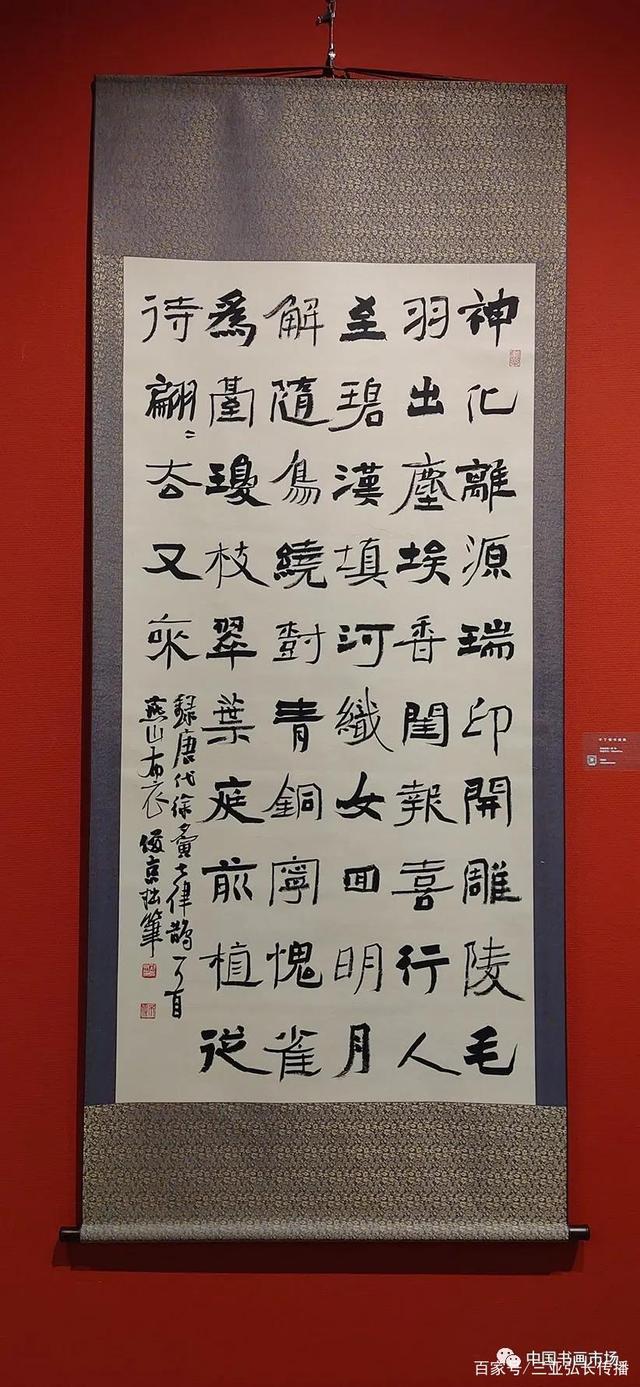 神化離源瑞印開雕陵毛
羽出塵埃香閨報喜行人
至碧漢填河織女回明月
解隨烏繞樹青銅寧愧雀
為臺瓊枝翠葉庭前植從
待翩〻去又來
錄唐代徐夤七律鵲一首
燕山布衣京拙筆
中国书画市场
百家号/三亚弘长传播